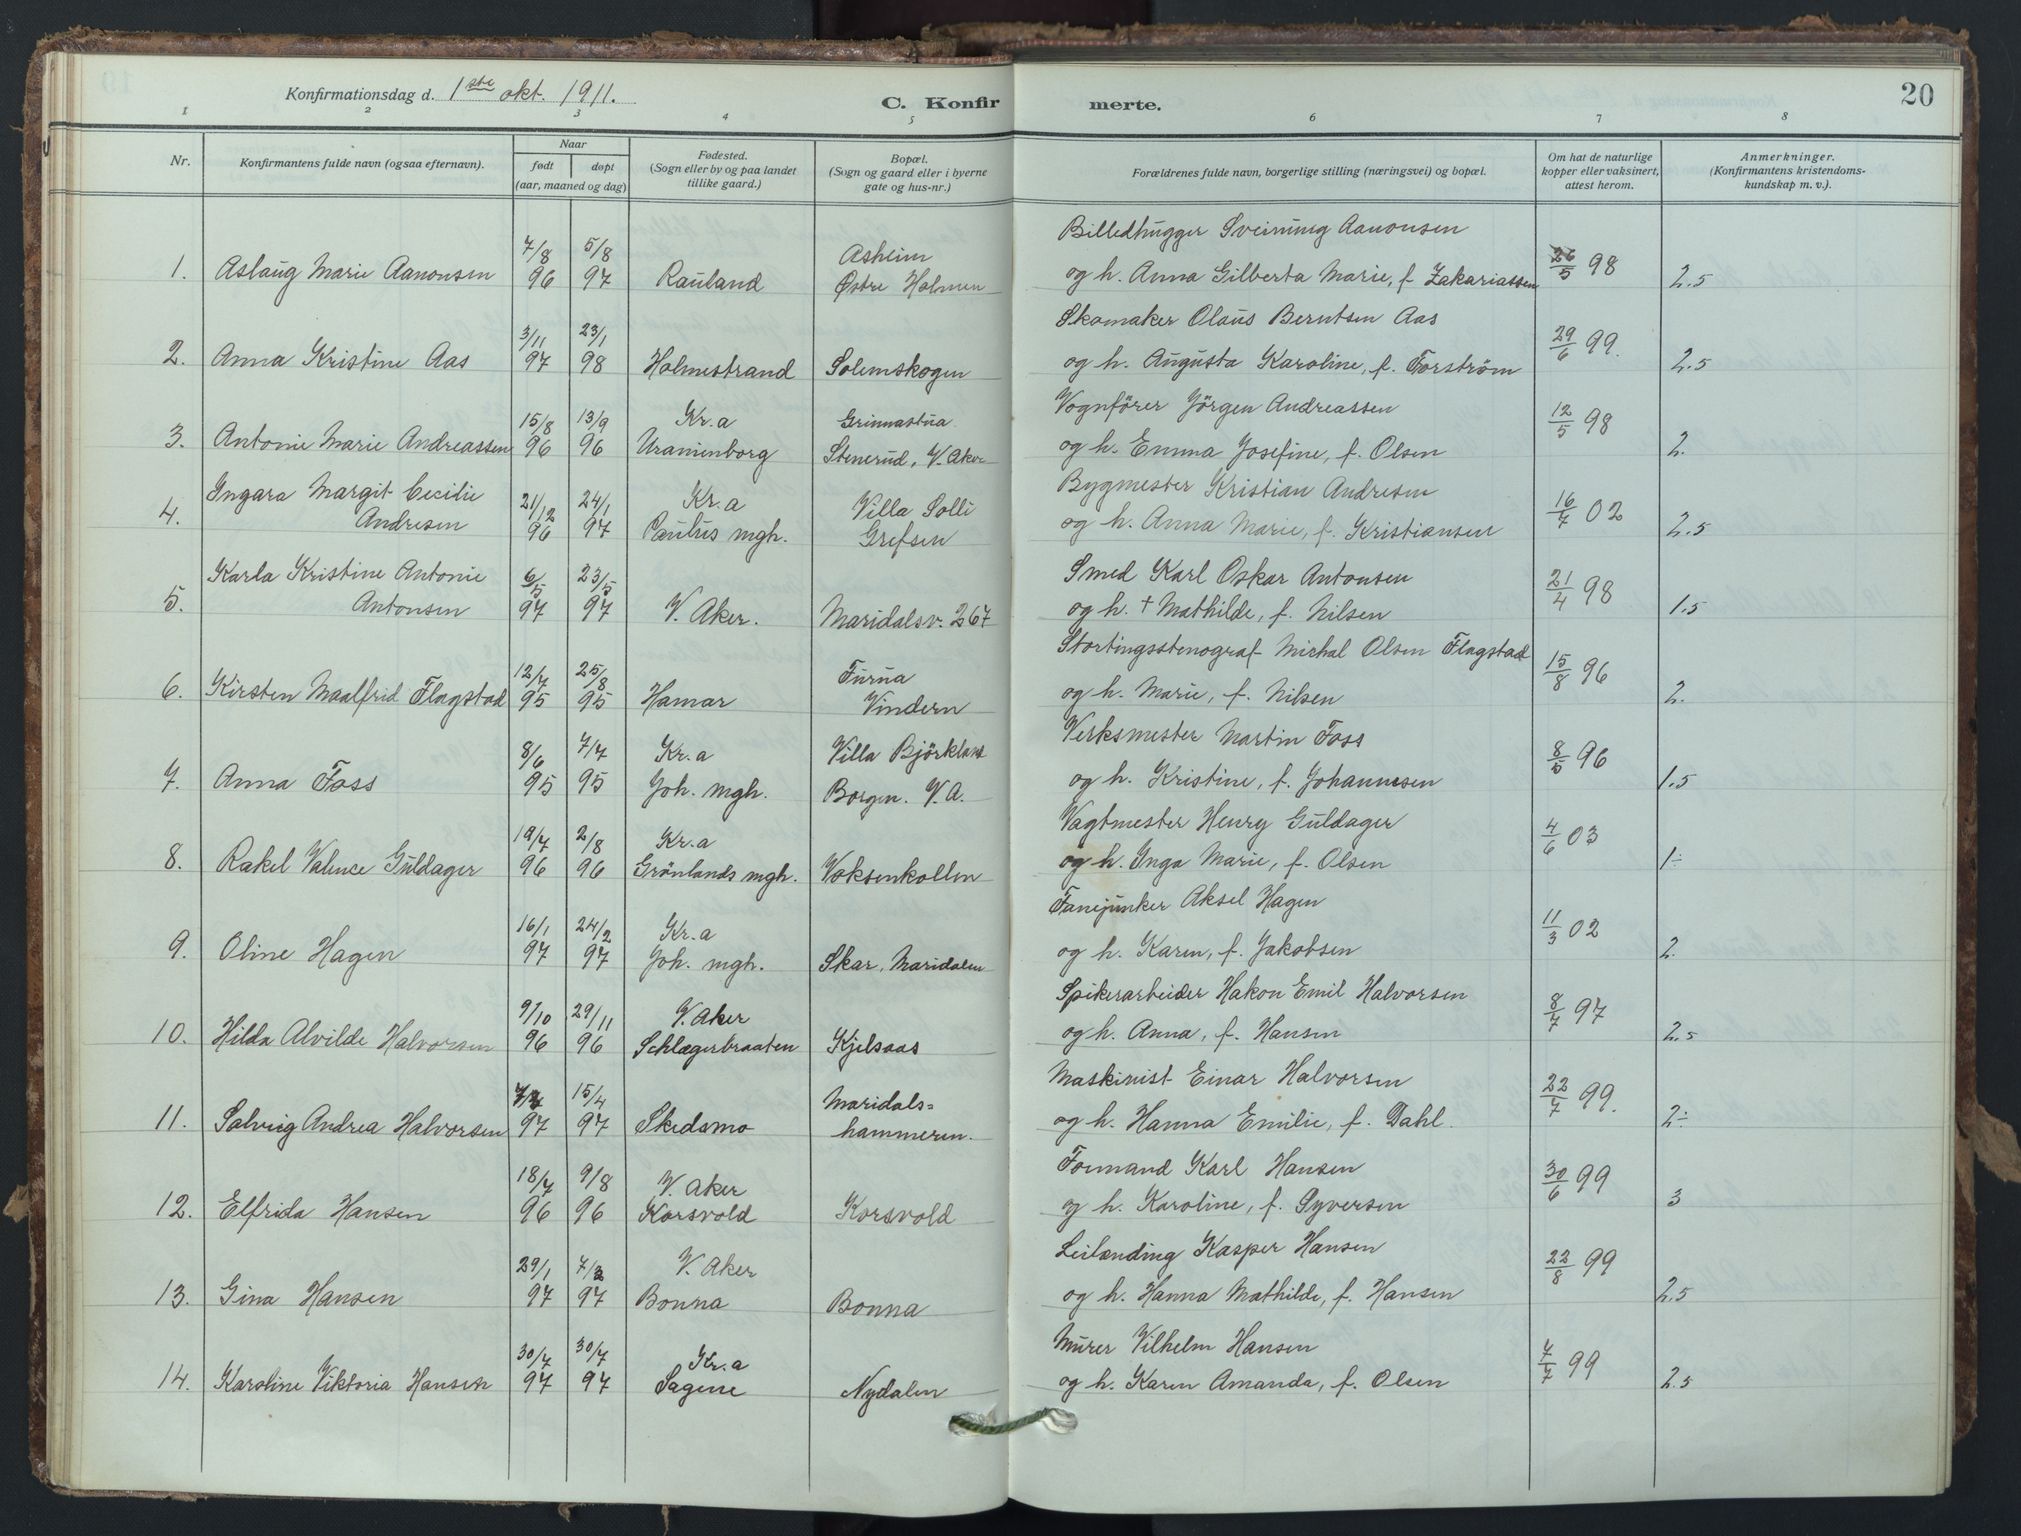 Konfirmationsdag d. 1ste okt. 1911.
C. Konfirmerte.
20
1 2 3 4 5 6 7 8
Nr.
Konfirmantens fulde navn (ogsaa efternavn).
Naar
født
døpt
(aar, maaned og dag)
Fødested.
(Sogn eller by og paa landet
tillike gaard.)
Bopæl.
(Sogn og gaard eller i byerne
gate og hus-nr.)
Forældrenes fulde navn, borgerlige stilling (næringsvei) og bopæl.
Om hat de naturlige
kopper eller vaksinert,
attest herom.
Anmerkninger.
(Konfirmantens kristendoms-
kundskap m. v.).
7/8 5/8 Asheim Billedhugger Sveinung Aanonsen
1. Aslaug Marie Aanonsen 96 97 Rauland Østre Holmen og h. Anna Gilberta Marie, f. Zakariassen 26/5 98 2.5
3/11 23/1 Skomaker Olaus Berntsen Aas
2. Anna Kristine Aas 97 98 Holmestrand Solemskogen og h. Augusta Karoline, f. Forström 29/6 99. 2.5
15/8 13/9 Kr.a Grinnastua Vognförer Jörgen Andreassen
3. Antonie Marie Andreassen 96 96 Uranienborg Stenerud, V. Aker og h. Emma Josefine, f. Olsen 12/5 98 2.
Ingara Margit Cecilie 21/12 24/1 Kr.a Villa Solli Bygmester Kristian Andresen
4. Andresen 96 97 Paulus mgh. Grefsen og h. Anna Marie, f. Kristiansen 16/7 02 2.5
Karla Kristine Antonie 6/5 23/5 Smed Karl Oskar Antonsen
5. Antonsen 97 97 V. Aker. Maridalsv. 267 og h. † Mathilde, f. Nilsen 21/4 98 1.5
12/7 25/8 Furua Stortingsstenograf Michal Olsen Flagstad
6. Kirsten Maalfrid Flagstad 95 95 Hamar Vindern og h. Marie, f. Nilsen 15/8 96 2.
8/6 7/7 Kr.a Villa Björklund Verksmester Martin Foss
7. Anna Foss 95 95 Joh. mgh. Borgen. V. A. og h. Kristine, f. Johannesen 8/5 96 1.5
19/7 2/8 Kr.a Vagtmester Henry Guldager
8. Rakel Valence Guldager 96 96 Grönlands mgh. Voksenkollen og h. Inga Marie, f. Olsen 4/6 03 1÷
16/1 24/2 Kr.a Fanejunker Aksel Hagen
9. Oline Hagen 97 97 Joh. mgh. Skar, Maridalen og h. Karen, f. Jakobsen 11/3 02 2.
9/10 29/11 V. Aker Spikerarbeider Hakon Emil Halvorsen
10. Hilda Alvilde Halvorsen 96 96 Schlægerbraaten Kjelsaas og h. Anna, f. Hansen 8/7 97 2.5
15/4 Maridals= Maskinist Einar Halvorsen
11. Solveig Andrea Halvorsen 97 97 Skedsmo hammeren. og h. Hanna Emilie, f. Dahl. 22/7 99. 2÷
18/7 9/8 V. Aker Formand Karl Hansen
12. Elfrida Hansen 96 96 Korsvold Korsvold og h. Karoline, f. Syversen 30/6 99 3
29/1 7/3 V. Aker Leilænding Kasper Hansen
13. Gina Hansen 97 97 Bonna Bonna og h. Hanna Mathilde, f. Hansen 22/8 99 2.5
30/7 30/7 Kr.a Murer Vilhelm Hansen
14. Karoline Viktoria Hansen 97 97 Sagene Nydalen og h. Karen Amanda, f. Olsen 7/7 99 2.5